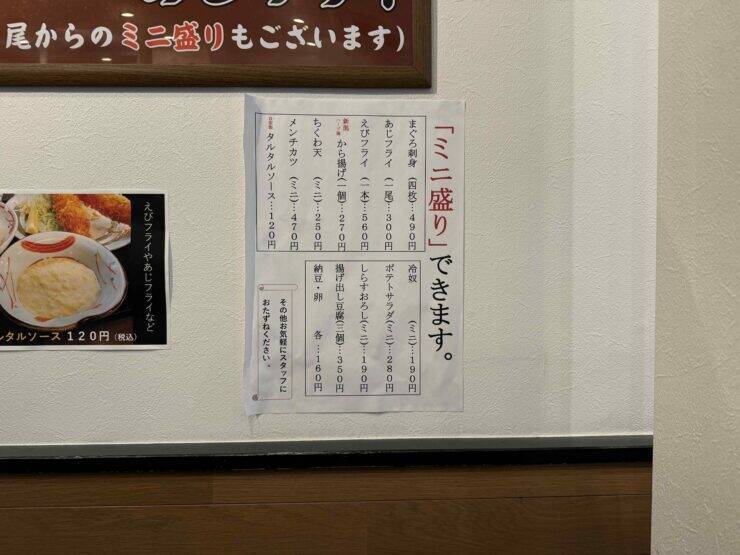 尾からのミニ盛りもございます)
「ミニ盛り」できます。
まぐろ刺身(四枚)…490円
あじフライ(一尾)…300円
えびフライ(一本)…560円
から揚げ(一個)…270円
ちくわ天(ミニ)…250円
メンチカツ(ミニ)…470円
自家製タルタルソース…120円
冷奴(ミニ)…190円
ポテトサラダ(ミニ)…280円
しらすおろし(ミニ)…190円
揚げ出し豆腐(三個)…350円
納豆・卵 各…160円
その他お気軽にスタッフに
おたずねください。
えびフライやあじフライなど
タルソース 120円(税込)